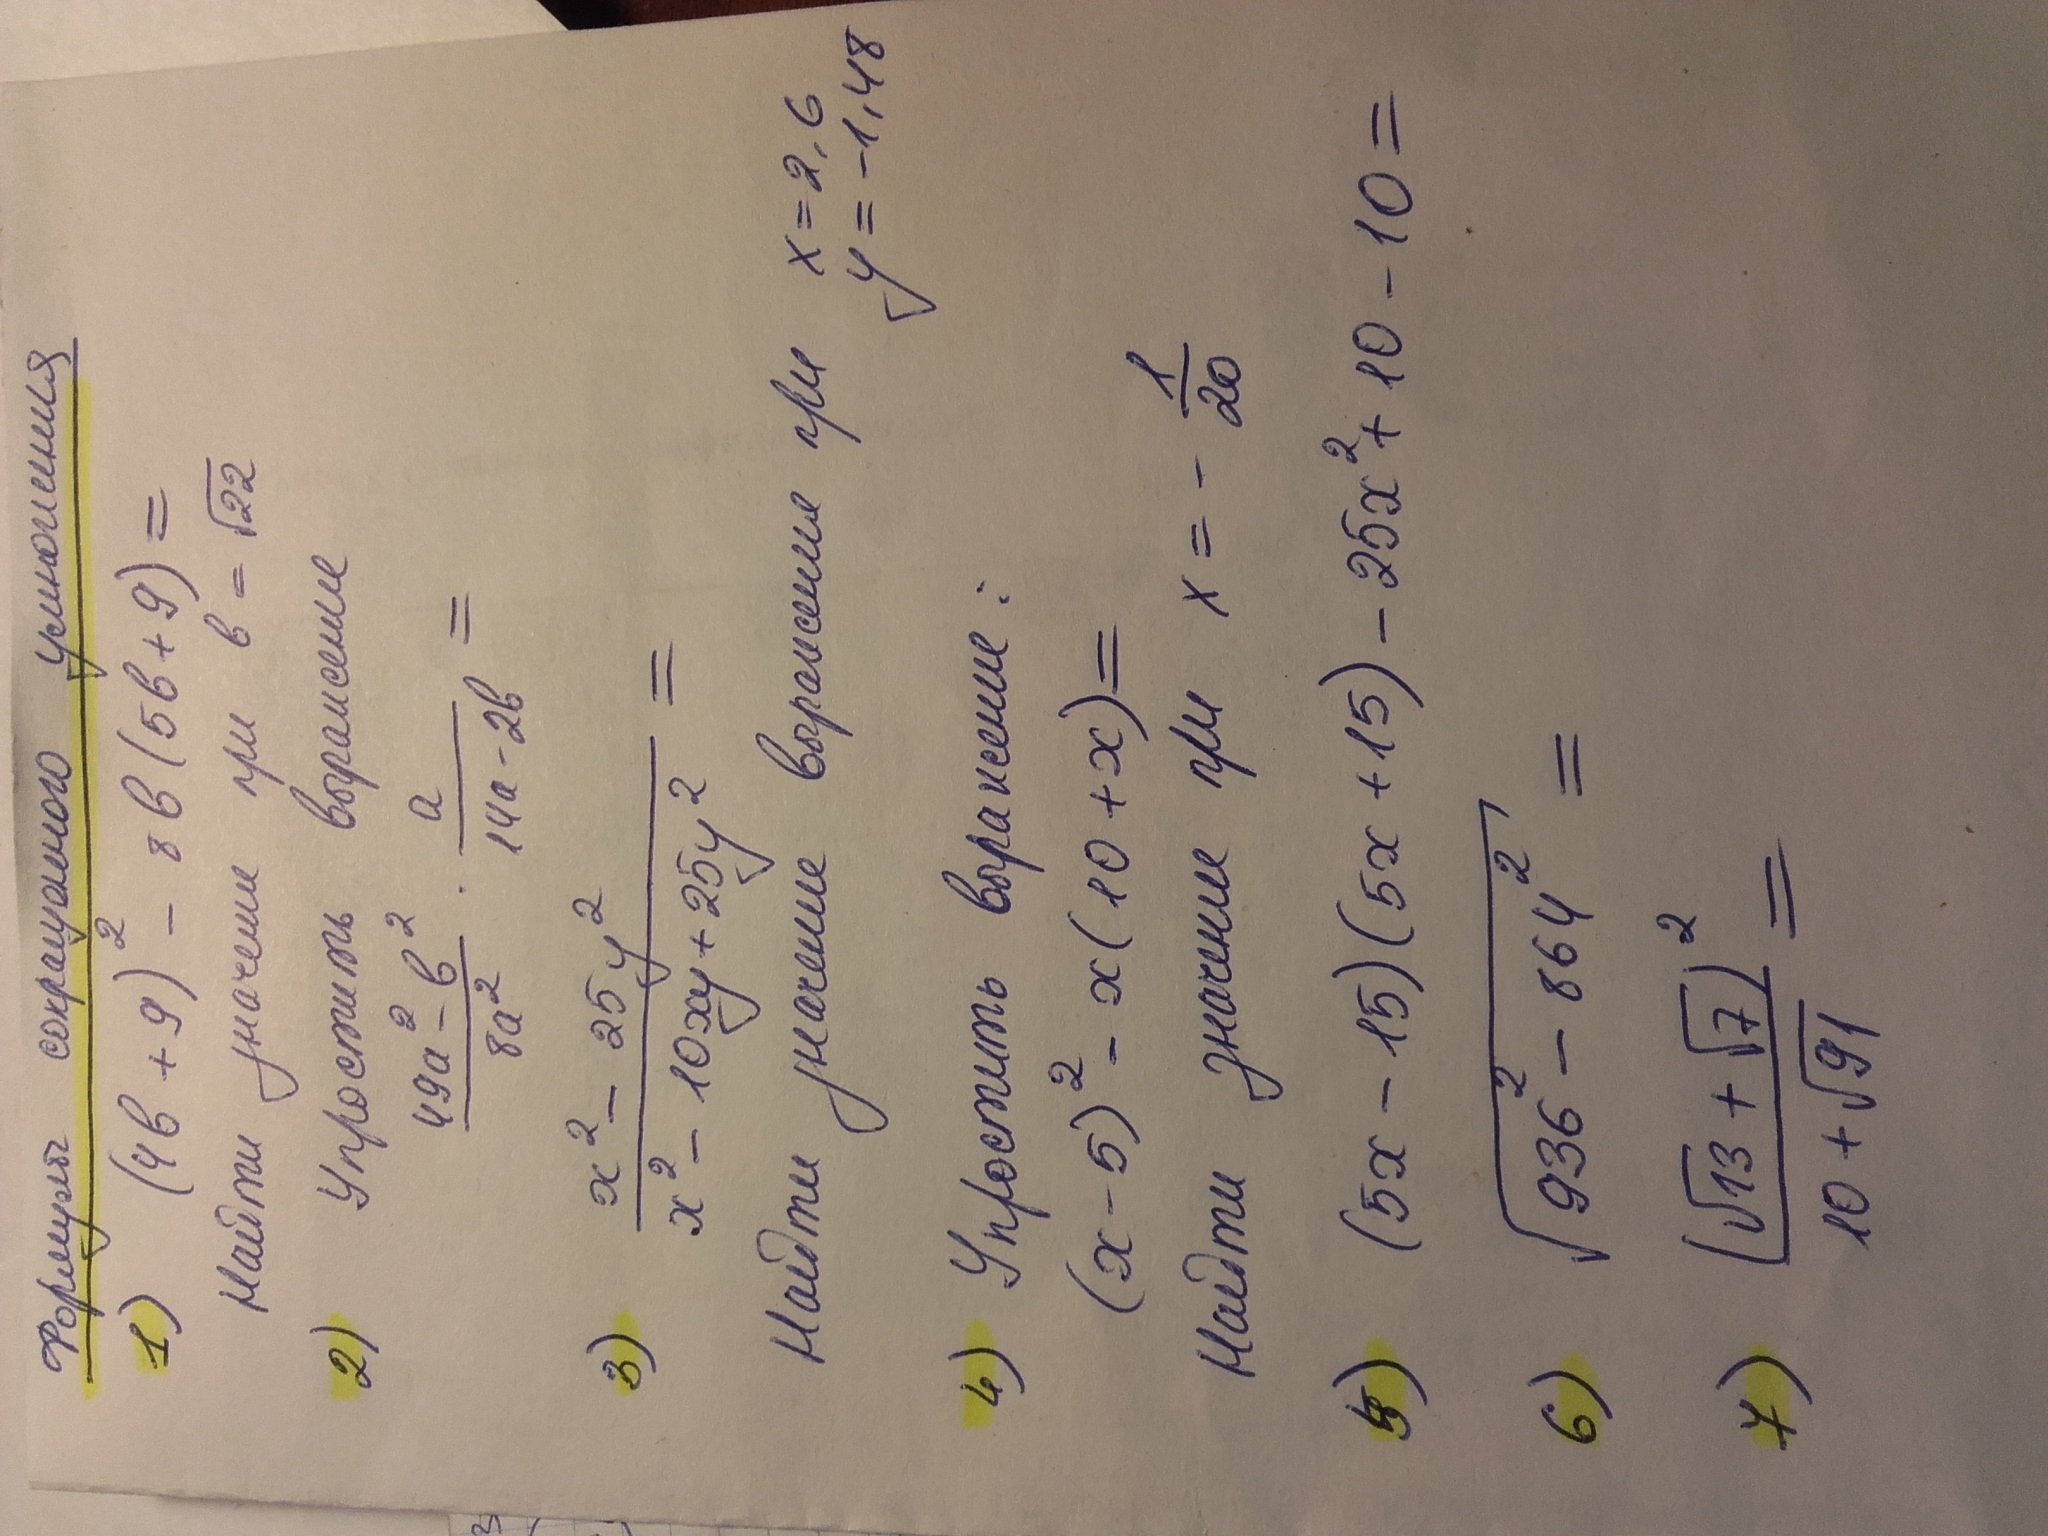 Формулы сокращённого умножения
1) (4b + 9)² - 8b(5b + 9) =
Найти значение при b = √22
2) Упростить выражение
(49a² - b²)/(8a²) · a/(14a - 2b) =
3) (x² - 25y²)/(x² - 10xy + 25y²) =
Найти значение выражения при x = 2,6
y = -1,48
4) Упростить выражение:
(x - 5)² - x(10 + x) =
Найти значение при x = - 1/20
5) (5x - 15)(5x + 15) - 25x² + 10 - 10 =
6) √(936² - 864²) =
7) (√13 + √7)²/(10 + √91) =